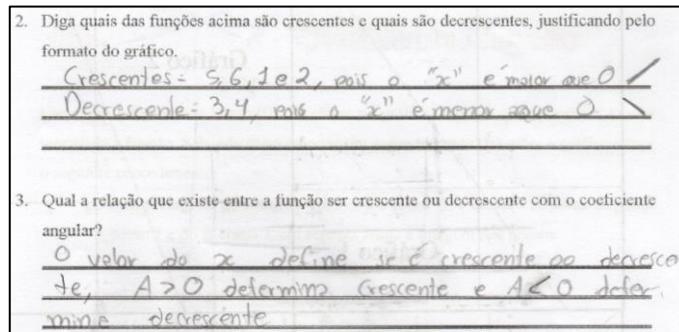 2. Diga quais das funções acima são crescentes e quais são decrescentes, justificando pelo
formato do gráfico.
Crescentes = 5, 6, 1 e 2, pois o "x" é maior que 0 /
Decrescente = 3, 4, pois o "x" é menor que 0 \
3. Qual a relação que existe entre a função ser crescente ou decrescente com o coeficiente
angular?
O valor do x define se é crescente ou decrescen
te, A > 0 determina crescente e A < 0 deter
mina decrescente